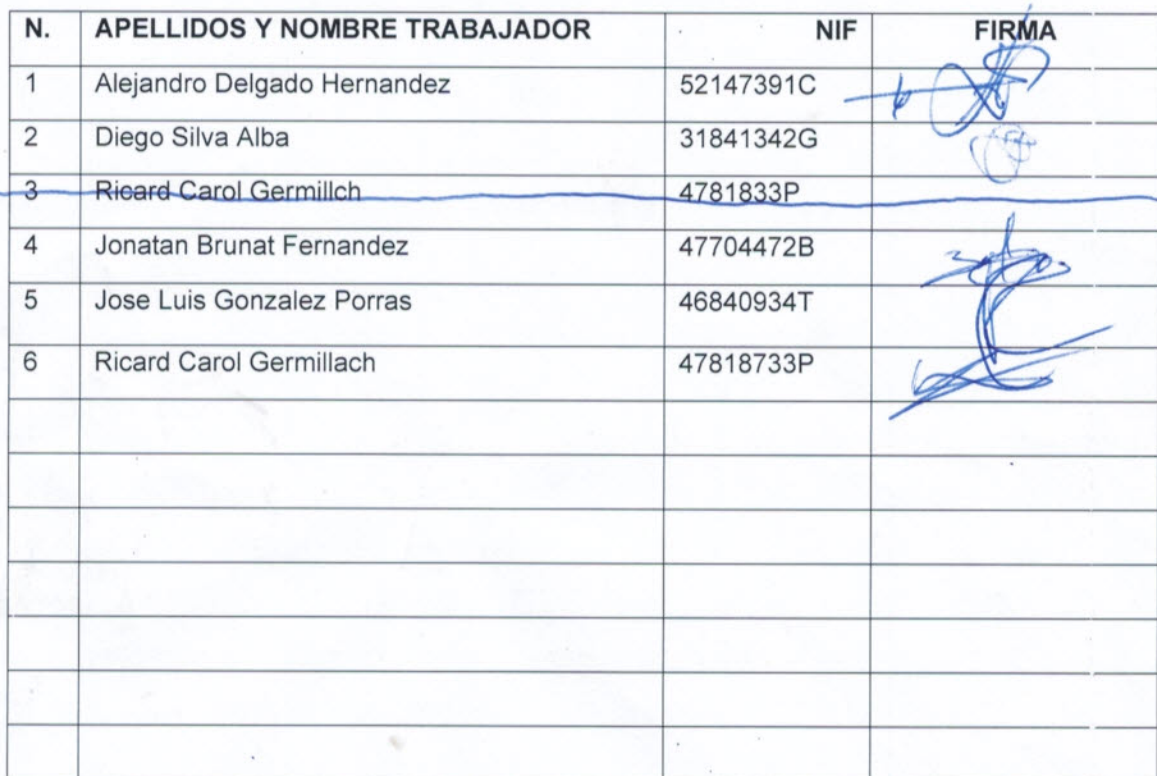 N. APELLIDOS Y NOMBRE TRABAJADOR NIF FIRMA
1 Alejandro Delgado Hernandez 52147391C
2 Diego Silva Alba 31841342G
3 Ricard Carol Germillch 4781833P
4 Jonatan Brunat Fernandez 47704472B
5 Jose Luis Gonzalez Porras 46840934T
6 Ricard Carol Germillach 47818733P